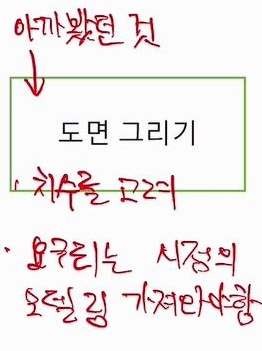 아까봤던 것
도면 그리기
· 치수를 고려
· 요구되는 시점의
모델링 가져와야함